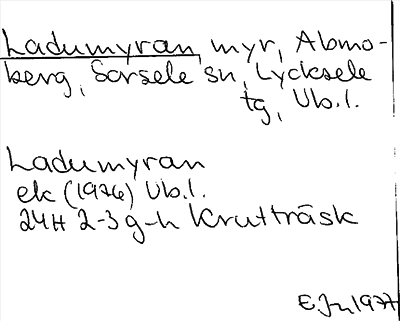 Ladumyran, myr, Abmo-
berg, Sorsele sn, Lycksele
tg, Vb.l.
Ladumyran
ek (1976) Vb.l.
24H 2-3 g-h Krutträsk
1977